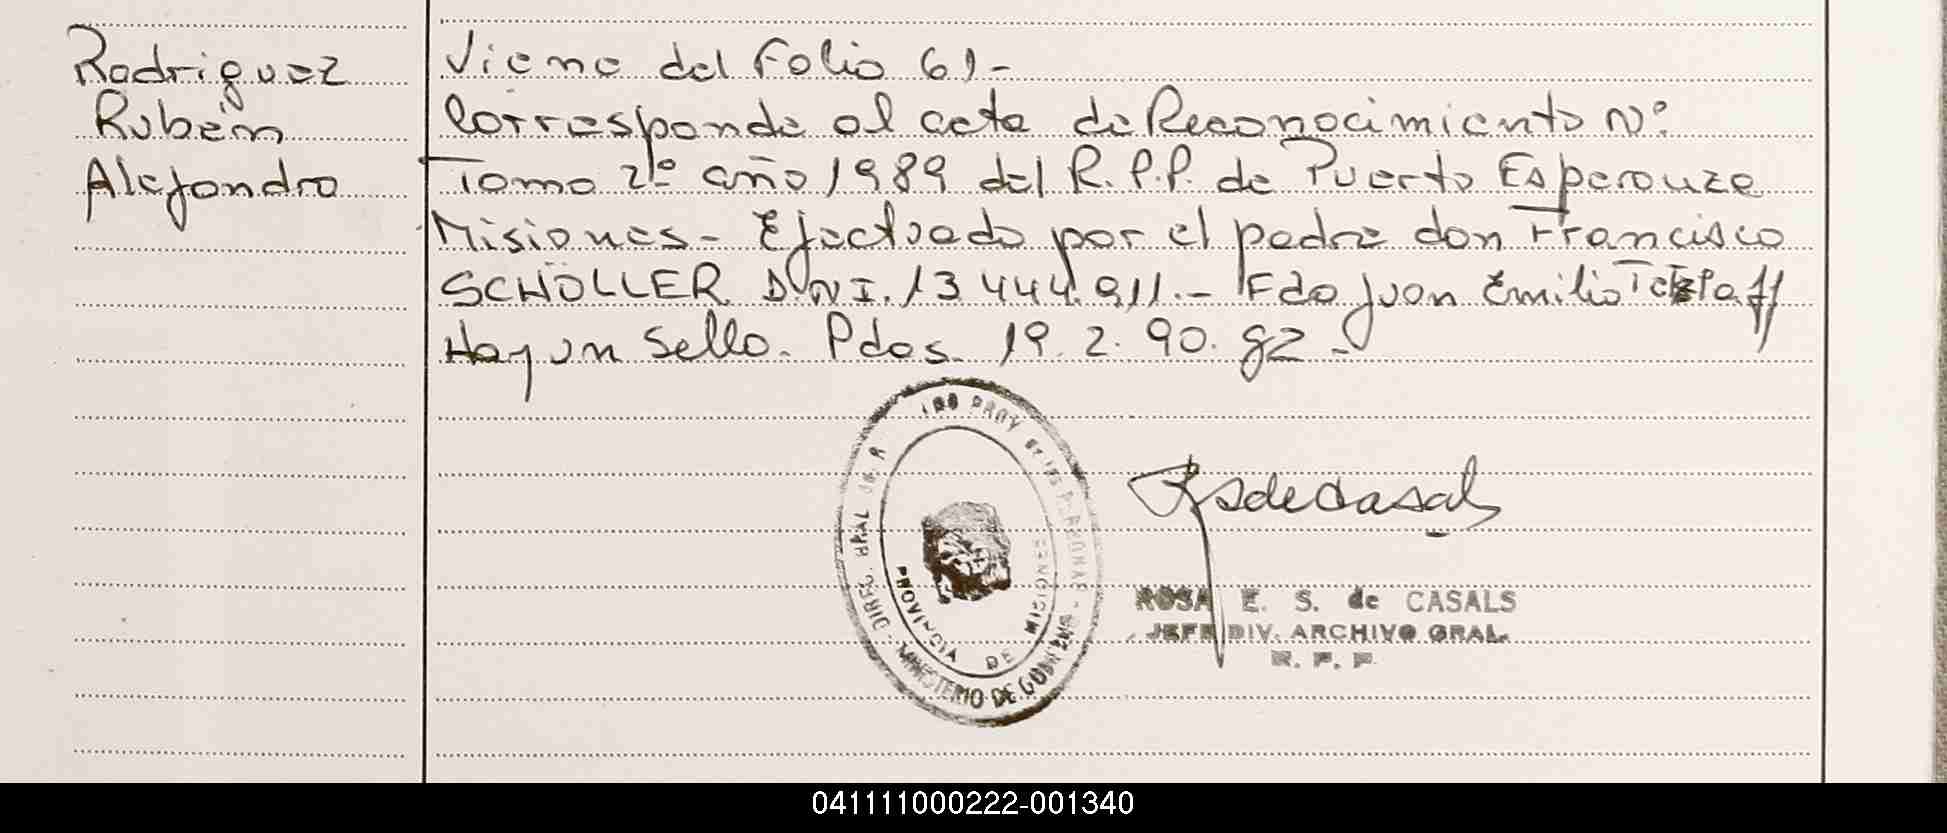 Rodriguez
Rubén
Alejandro
Viene del Folio 61-
Corresponde al acta de Reconocimiento Nº
Tomo 2º año 1989 del R.P.P. de Puerto Esperanza
Misiones- Efectuado por el padre don Francisco
SCHÖLLER D.N.I. 13.444.911.- Fdo Juan Emilio
Hay un sello. Pdas. 19.2.90. gz-
DIREC. GRAL DE PROV DE LAS PERSONAS - MINISTERIO DE
PROVINCIA DE MISIONES
RSdeCasals
ROSA E. S. de CASALS
JEFE DIV. ARCHIVO GRAL.
R. P. P.
041111000222-001340